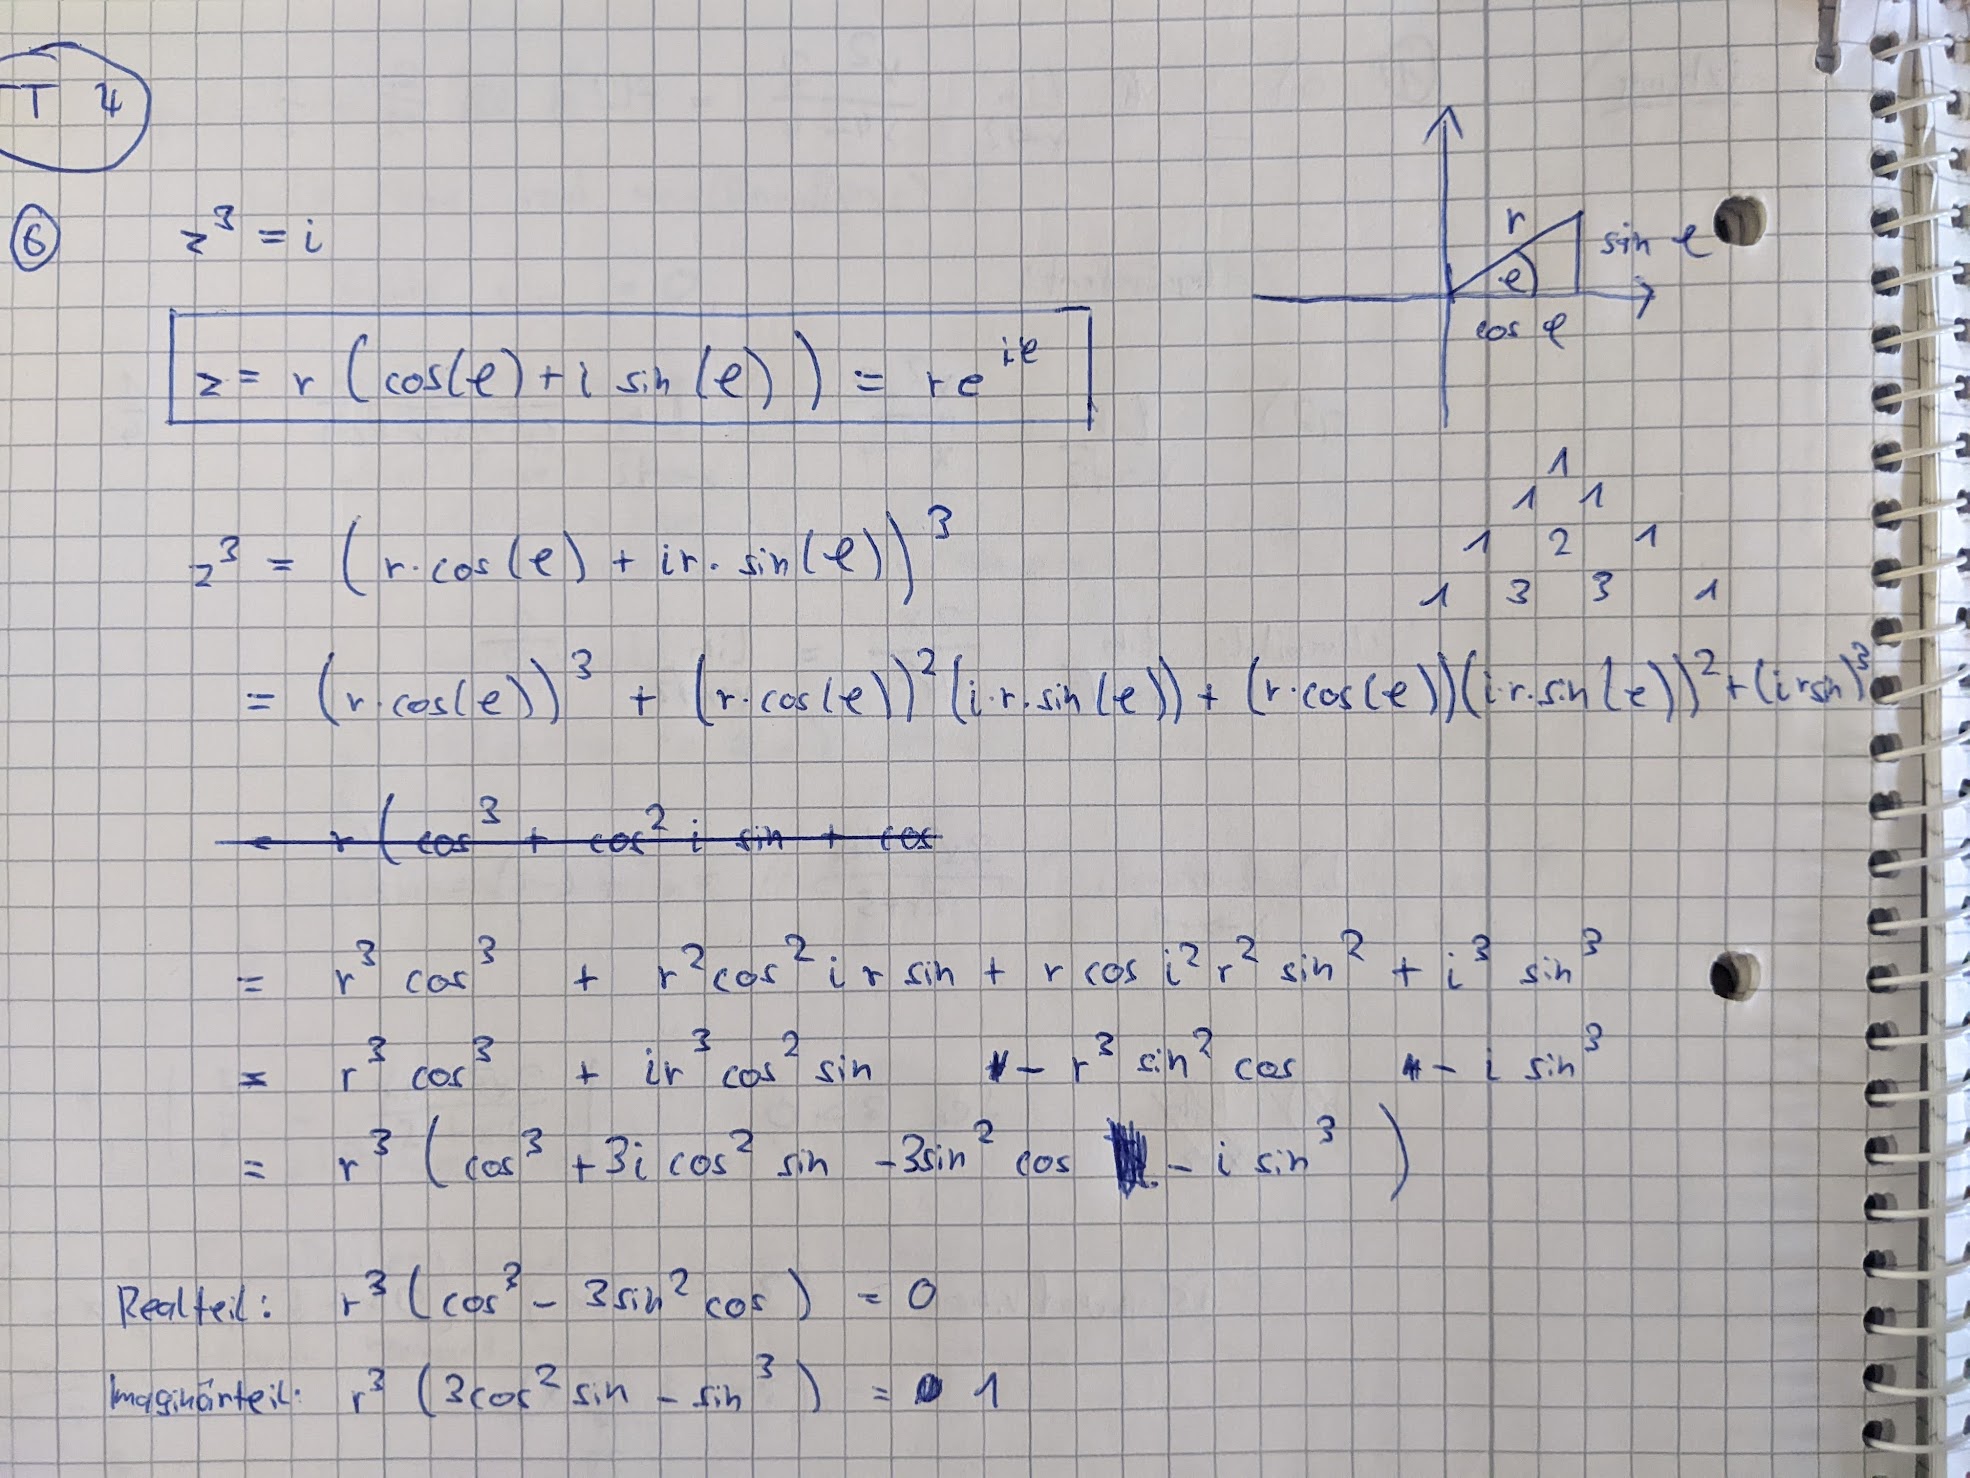 T 4
6
z³ = i
r
φ
sin φ
cos φ
z = r (cos(φ) + i sin(φ)) = r e^(iφ)
1
1 1
1 2 1
1 3 3 1
z³ = (r·cos(φ) + ir·sin(φ))³
= (r·cos(φ))³ + (r·cos(φ))²(i·r·sin(φ)) + (r·cos(φ))(i·r·sin(φ))² + (i r sin)³
= r (cos³ + cos² i sin + cos
= r³ cos³ + r² cos² i r sin + r cos i² r² sin² + i³ sin³
= r³ cos³ + ir³ cos² sin - r³ sin² cos - i sin³
= r³ (cos³ + 3i cos² sin - 3sin² cos - i sin³)
Realteil: r³ (cos³ - 3sin² cos) = 0
Imaginärteil: r³ (3cos² sin - sin³) = 1